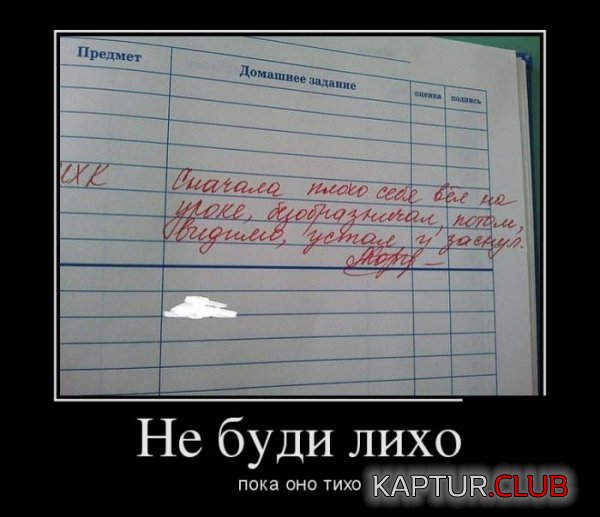 Предмет
Домашнее задание
оценка
подпись
МХК
Сначала плохо себя вёл на
уроке, безобразничал, потом,
видимо, устал, и заснул.
Не буди лихо
пока оно тихо
KAPTUR.CLUB